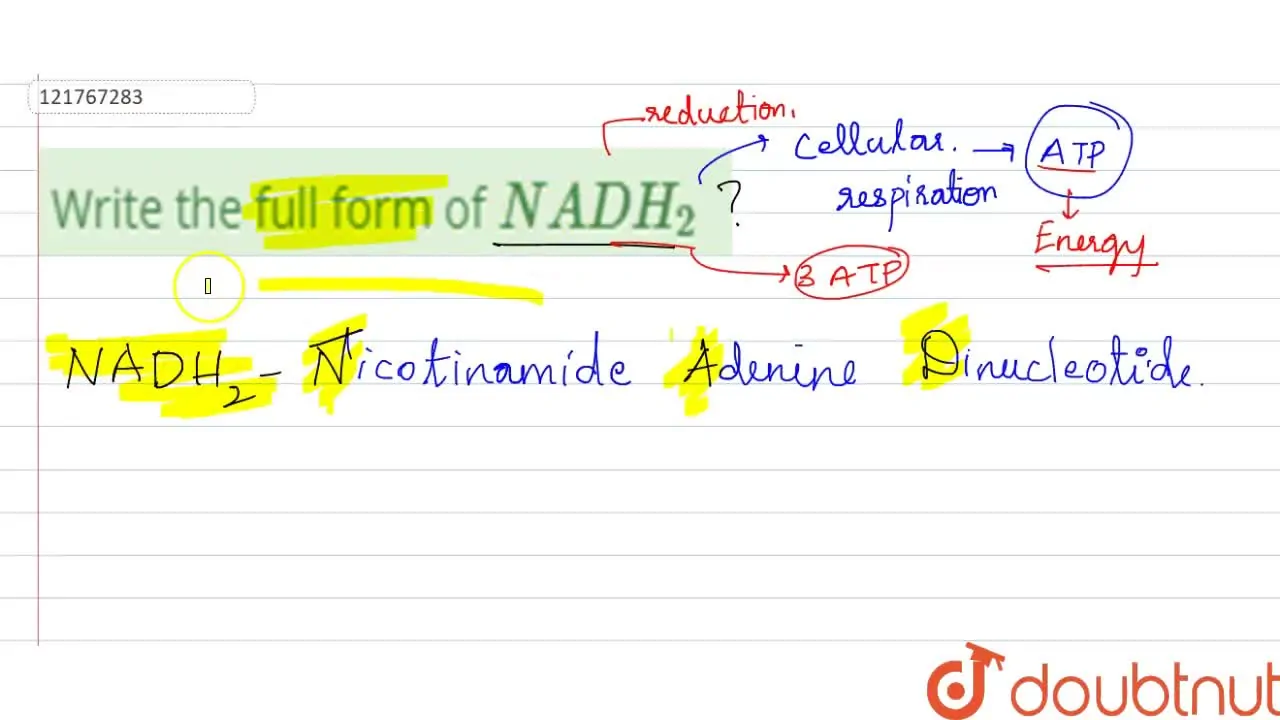 121767283
reduction.
Write the full form of NADH₂ ?
cellular. → ATP
respiration
Energy
3 ATP
NADH₂ - Nicotinamide Adenine Dinucleotide.
doubtnut